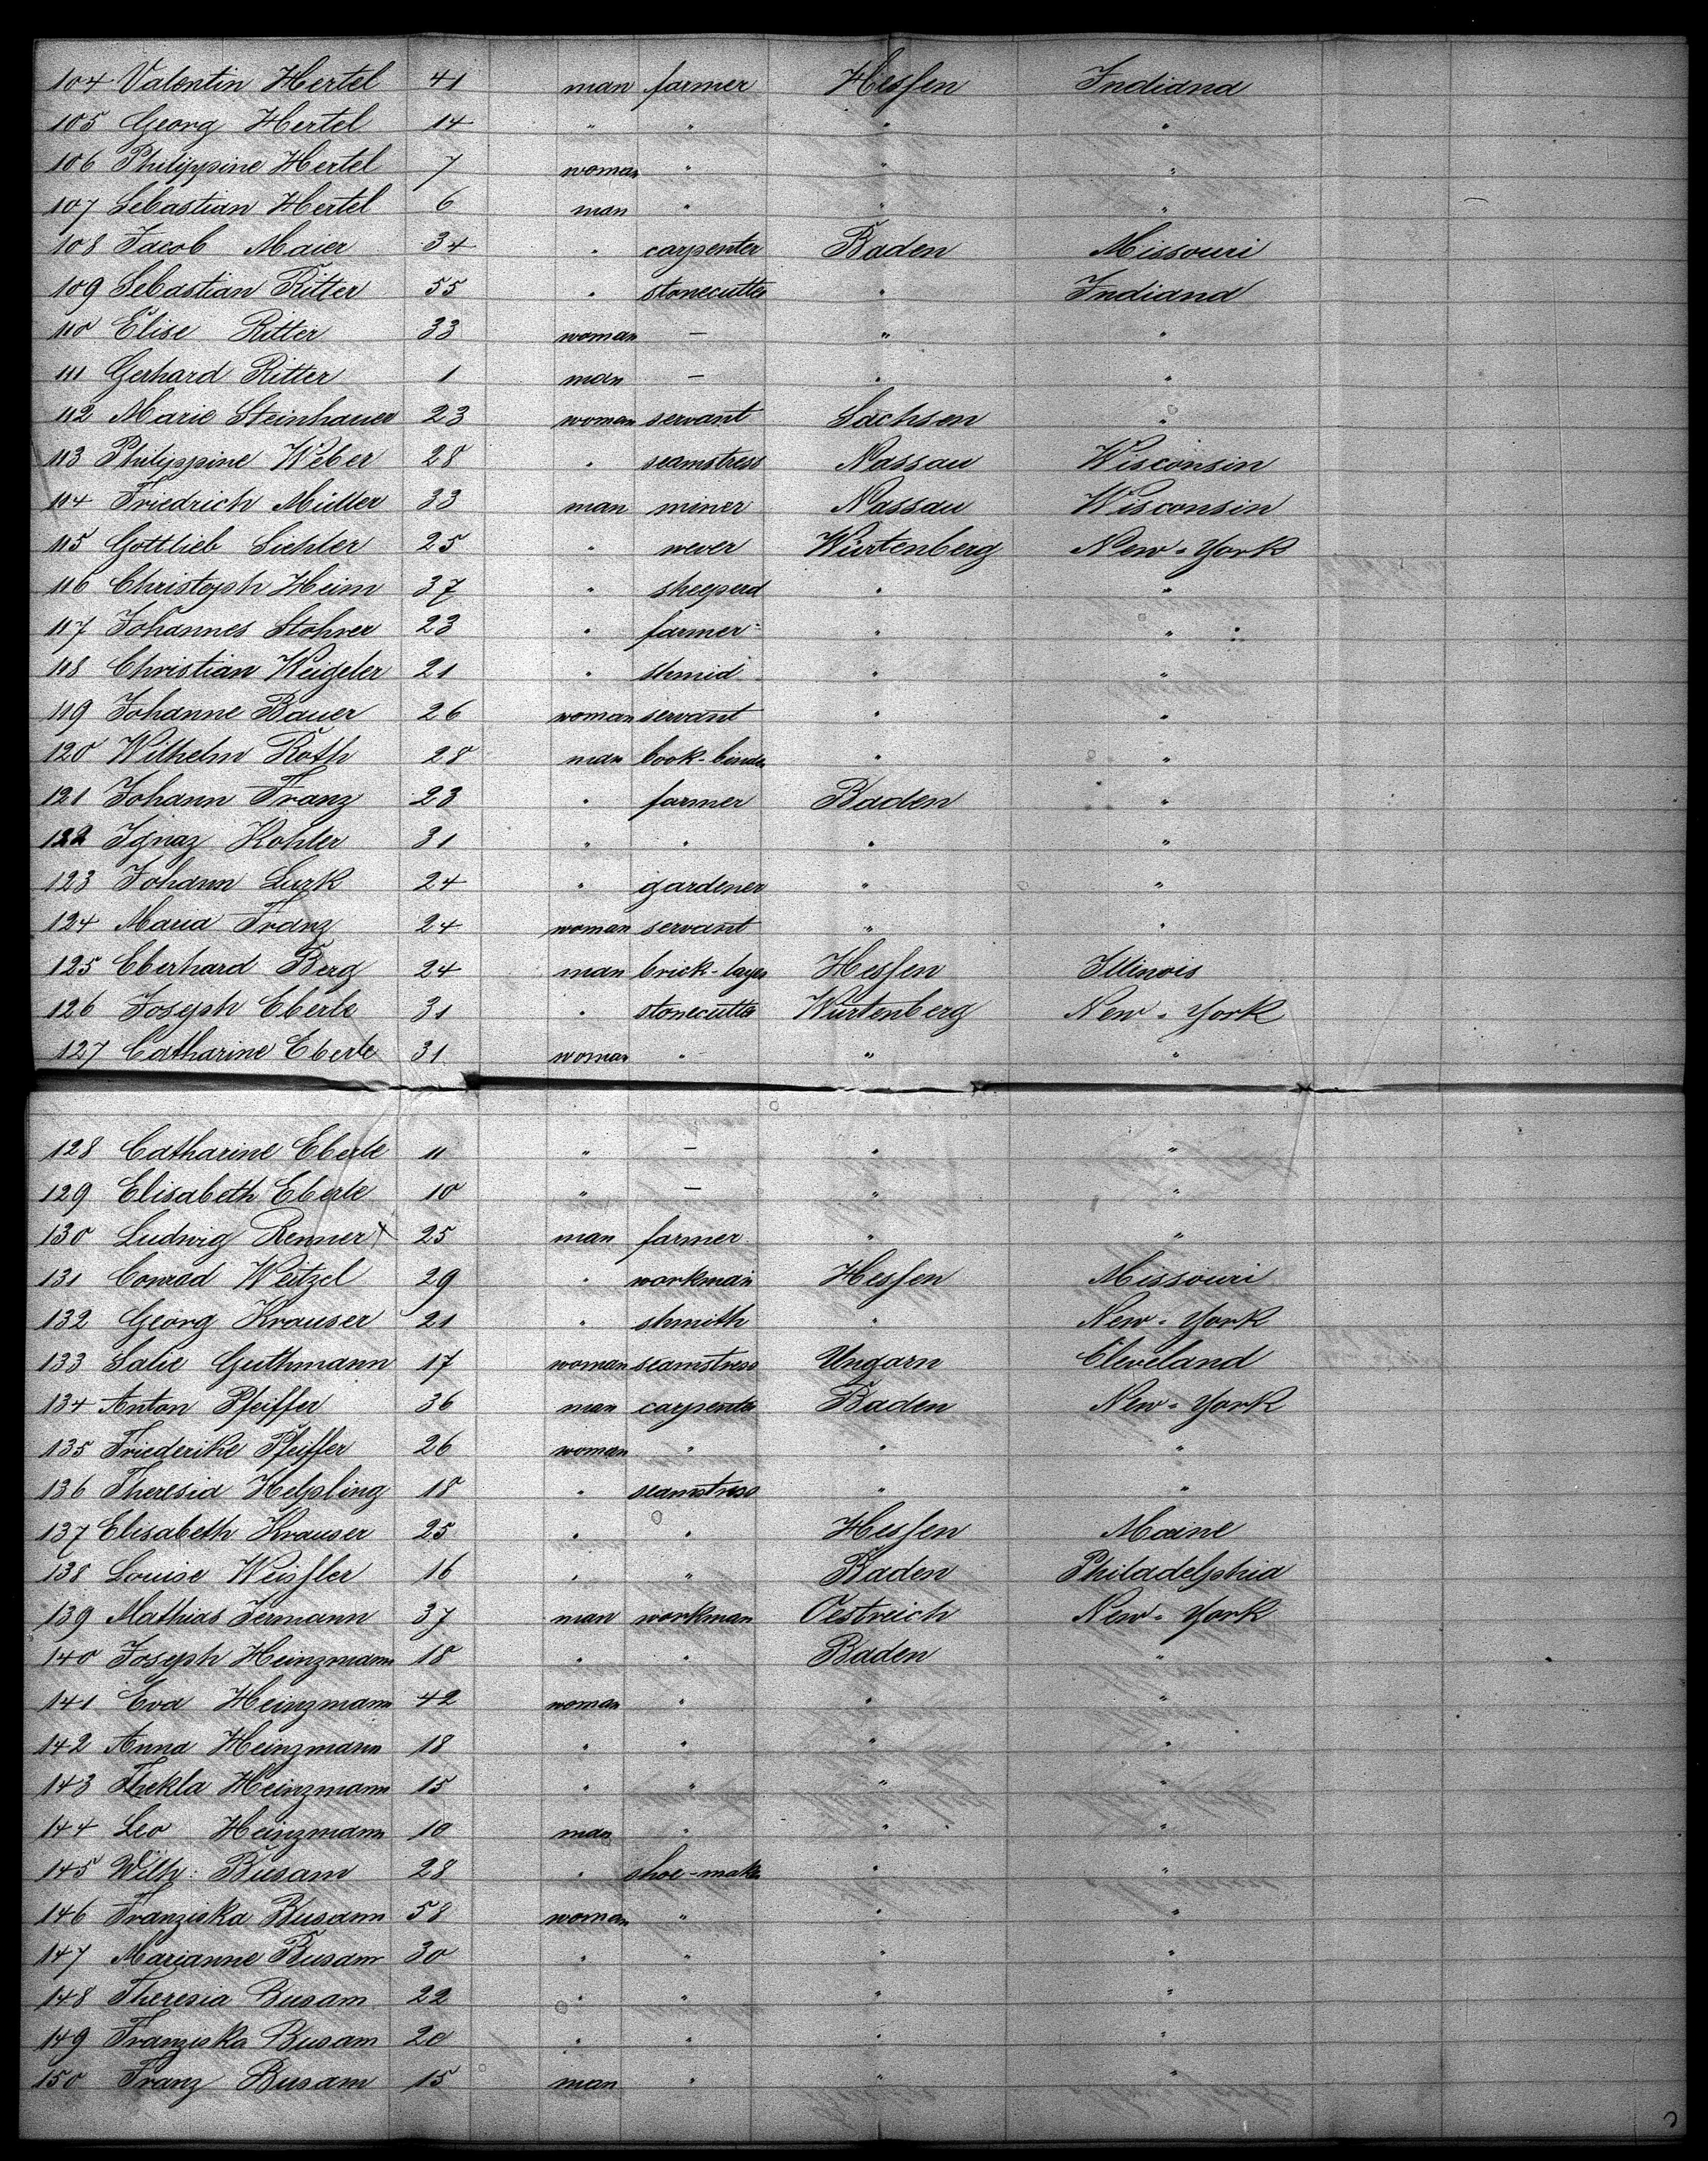 104 Valentin Hertel 41 man farmer Hessen Indiana
105 Georg Hertel 14 " " " "
106 Philippine Hertel 7 woman " " "
107 Sebastian Hertel 6 man " " "
108 Jacob Maier 34 " carpenter Baden Missouri
109 Sebastian Ritter 55 " stonecutter " Indiana
110 Elise Ritter 33 woman — " "
111 Gerhard Ritter 1 man — " "
112 Marie Steinhauer 23 woman servant Sachsen "
113 Philippine Weber 28 " seamstress Nassau Wisconsin
114 Friedrich Müller 33 man miner Nassau Wisconsin
115 Gottlieb 25 " wever Würtenberg New-York
116 Christoph Heim 37 " sheeperd " "
117 Johannes Stohrer 23 " farmer " "
118 Christian Weigeler 21 " shmid " "
119 Johanne Bauer 26 woman servant " "
120 Wilhelm Roth 28 man book-binder " "
121 Johann Franz 23 " farmer Baden "
122 Ignaz Kohler 31 " " " "
123 Johann Lurk 24 " gardener " "
124 Maria Franz 24 woman servant " "
125 Eberhard Berg 24 man brick-layer Hessen Illinois
126 Joseph Eberle 31 " stonecutter Würtenberg New-York
127 Catharine Eberle 31 woman " " "
128 Catharine Eberle 11 " — " "
129 Elisabeth Eberle 10 " — " "
130 Ludwig Renner 25 man farmer " "
131 Conrad Weitzel 29 " workman Hessen Missouri
132 Georg Krauser 21 " shmith " New-York
133 Salie Guthmann 17 woman seamstress Ungarn Cleveland
134 Anton Pfeiffer 36 man carpenter Baden New-York
135 Friederike Pfeiffer 26 woman " " "
136 Theresia Helpling 18 " seamstress " "
137 Elisabeth Krauser 25 " " Hessen Maine
138 Louise Weissler 16 " " Baden Philadelphia
139 Mathias Jermann 37 man workman Oestreich New-York
140 Joseph Heinzmann 18 " " Baden "
141 Eva Heinzmann 42 woman " " "
142 Anna Heinzmann 18 " " " "
143 Thekla Heinzmann 15 " " " "
144 Leo Heinzmann 10 man " " "
145 Wilh: Busam 28 " shoe-maker " "
146 Franziska Busam 58 woman " " "
147 Marianne Busam 30 " " " "
148 Theresia Busam 22 " " " "
149 Franziska Busam 20 " " " "
150 Franz Busam 15 man " " "